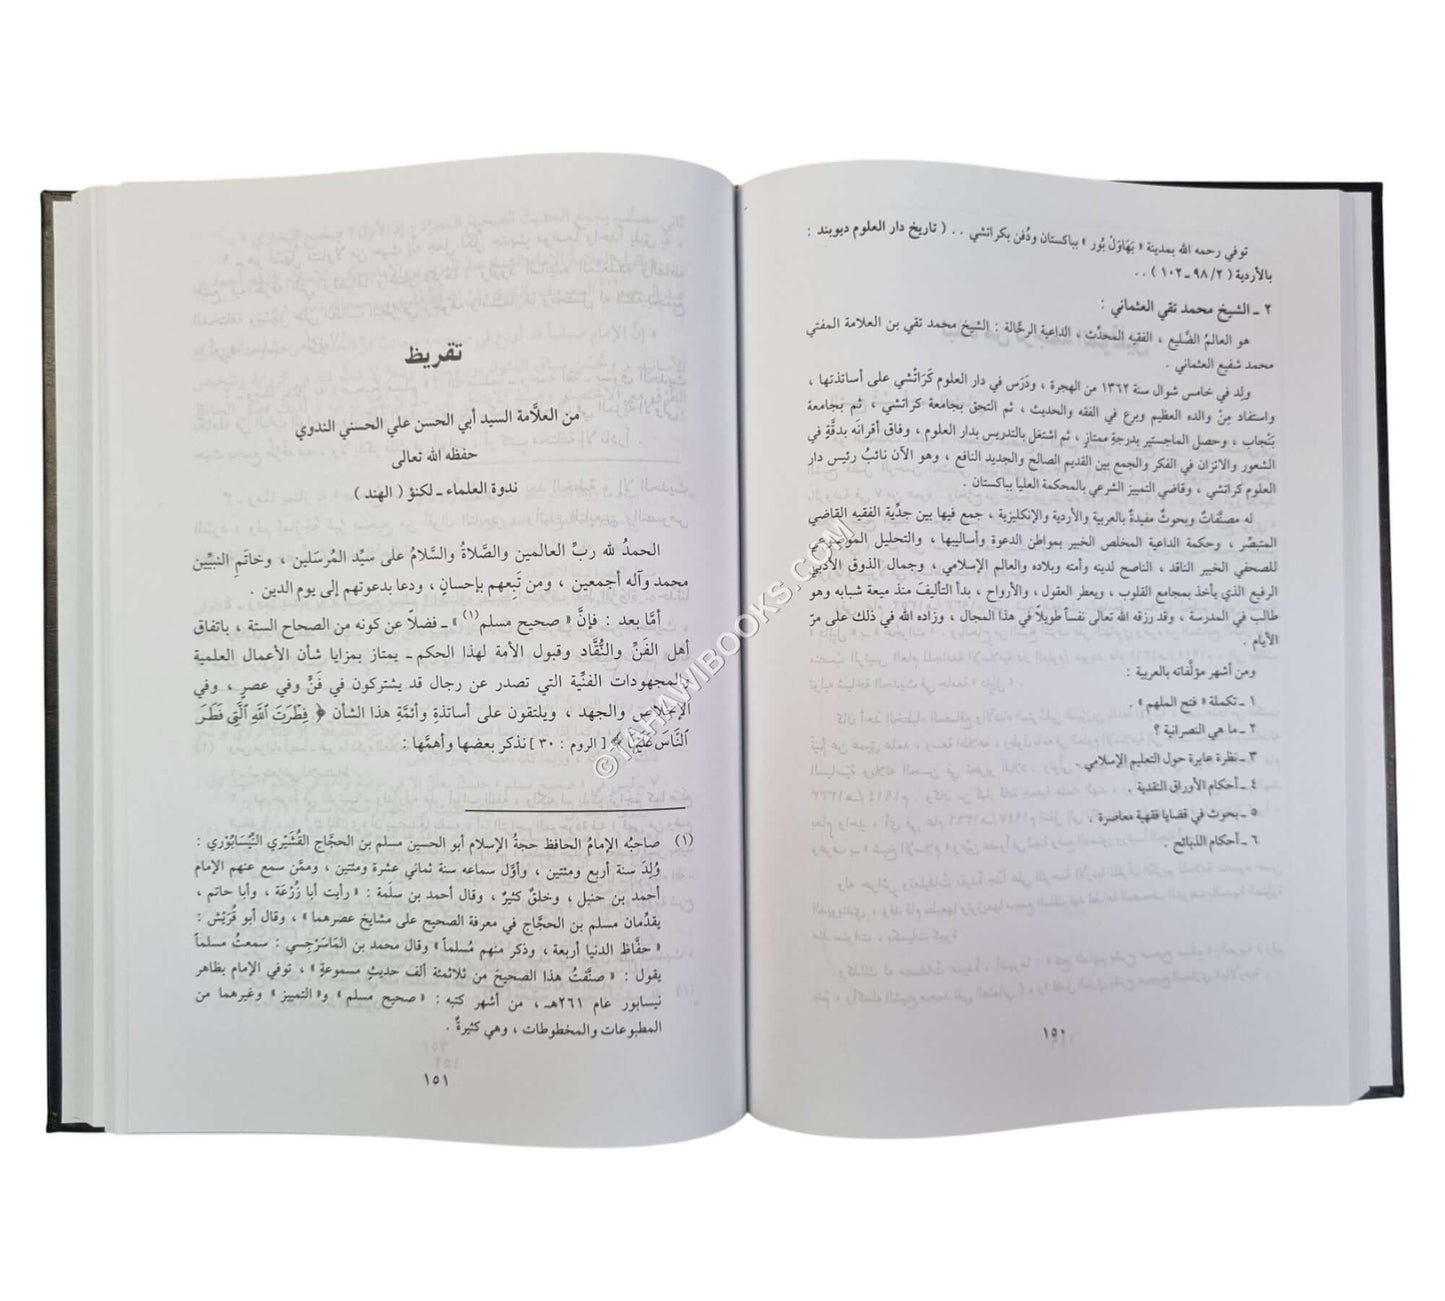 توفي رحمه الله بمدينة « بَهَاوَلْ بُور » بباكستان ودُفن بكراتشي . . ( تاريخ دار العلوم ديوبند :
بالأردية ( ٢/ ٩٨ ـ ١٠٢ ) . .
٢ ـ الشيخ محمد تقي العثماني :
هو العالمُ الضَّليع ، الفقيه المحدِّث ، الداعية الرحَّالة : الشيخ محمد تقي بن العلامة المفتي
محمد شفيع العثماني .
ولد في خامس شوال سنة ١٣٦٢ من الهجرة ، ودَرَس في دار العلوم كَرَاتْشي على أساتذتها ،
واستفاد مِنْ والده العظيم وبرع في الفقه والحديث ، ثم التحق بجامعة كراتشي ، ثم بجامعة
بَنْجاب ، وحصل الماجستير بدرجةٍ ممتازٍ ، ثم اشتغل بالتدريس بدار العلوم ، وفاق أقرانَه بدقَّةٍ في
الشعور والاتزان في الفكر والجمع بين القديم الصالح والجديد النافع ، وهو الآن نائبُ رئيس دار
العلوم كراتشي ، وقاضي التمييز الشرعي بالمحكمة العليا بباكستان .
له مصنَّفاتٌ وبحوثٌ مفيدةٌ بالعربية والأردية والإنكليزية ، جمع فيها بين جدِّية الفقيه القاضي
المتبصِّر ، وحكمة الداعية المخلص الخبير بمواطن الدعوة وأساليبها ، والتحليل
للصحفي الخبير الناقد ، الناصح لدينه وأمته وبلاده والعالم الإسلامي ، وجمال الذوق الأدبي
الرفيع الذي يأخذ بمجامع القلوب ، ويعطر العقول ، والأرواح ، بدأ التأليفَ منذ ميعة شبابه وهو
طالب في المدرسة ، وقد رزقه الله تعالى نفساً طويلاً في هذا المجال ، وزاده الله في ذلك على مرّ
الأيام .
ومن أشهر مؤلَّفاته بالعربية :
١ ـ تكملة « فتح الملهم » .
٢ ـ ما هي النصرانية ؟
٣ ـ نظرة عابرة حول التعليم الإسلامي .
٤ ـ أحكام الأوراق النقدية .
٥ ـ بحوث في قضايا فقهية معاصرة .
٦ ـ أحكام الذبائح .
١٥٠
تقريظ
من العلَّامة السيد أبي الحسن علي الحسني الندوي
حفظه الله تعالى
ندوة العلماء ـ لكنؤ ( الهند )
الحمدُ لله ربِّ العالمين والصَّلاةُ والسَّلامُ على سيِّد المُرسَلين ، وخاتَمِ النبيِّين
محمد وآله أجمعين ، ومن تَبِعهم بإحسانٍ ، ودعا بدعوتهم إلى يوم الدين .
أمَّا بعد : فإنَّ « صحيح مسلم(١) » ـ فضلاً عن كونه من الصحاح الستة ، باتفاق
أهل الفَنِّ والنُّقَّاد وقبول الأمة لهذا الحكم ـ يمتاز بمزايا شأن الأعمال العلمية
والمجهودات الفنِّية التي تصدر عن رجال قد يشتركون في فَنٍّ وفي عصرٍ ، وفي
الإخلاص والجهد ، ويلتقون على أساتذةٍ وأئمَّةِ هذا الشأن ﴿ فِطْرَتَ ٱللَّهِ ٱلَّتِى فَطَرَ
ٱلنَّاسَ عَلَيْهَا ﴾ [ الروم : ٣٠ ] نذكر بعضها وأهمَّها :
(١) صاحبُه الإمامُ الحافظ حجةُ الإسلام أبو الحسين مسلم بن الحجَّاج القُشَيْري النَّيْسَابُوْري :
وُلِدَ سنة أربع ومئتين ، وأوَّل سماعه سنة ثماني عشرة ومئتين ، وممَّن سمع عنهم الإمام
أحمد بن حنبل ، وخلقٌ كثيرٌ ، وقال أحمد بن سلَمة : « رأيت أبا زُرْعَة ، وأبا حاتم ،
يقدِّمان مسلم بن الحجَّاج في معرفة الصحيح على مشايخ عصرهما » ، وقال أبو قُرَيْش :
« حفَّاظ الدنيا أربعة ، وذكر منهم مُسلماً » وقال محمد بن المَاسَرْجِسي : سمعتُ مسلماً
يقول : « صنَّفتُ هذا الصحيحَ من ثلاثمئة ألف حديثٍ مسموعةٍ » ، توفي الإمام بظاهر
نيسابور عام ٢٦١هـ ، من أشهر كتبه : « صحيح مسلم » و« التمييز » وغيرهما من
المطبوعات والمخطوطات ، وهي كثيرةٌ .
١٥١
©TAHAWIBOOKS.COM